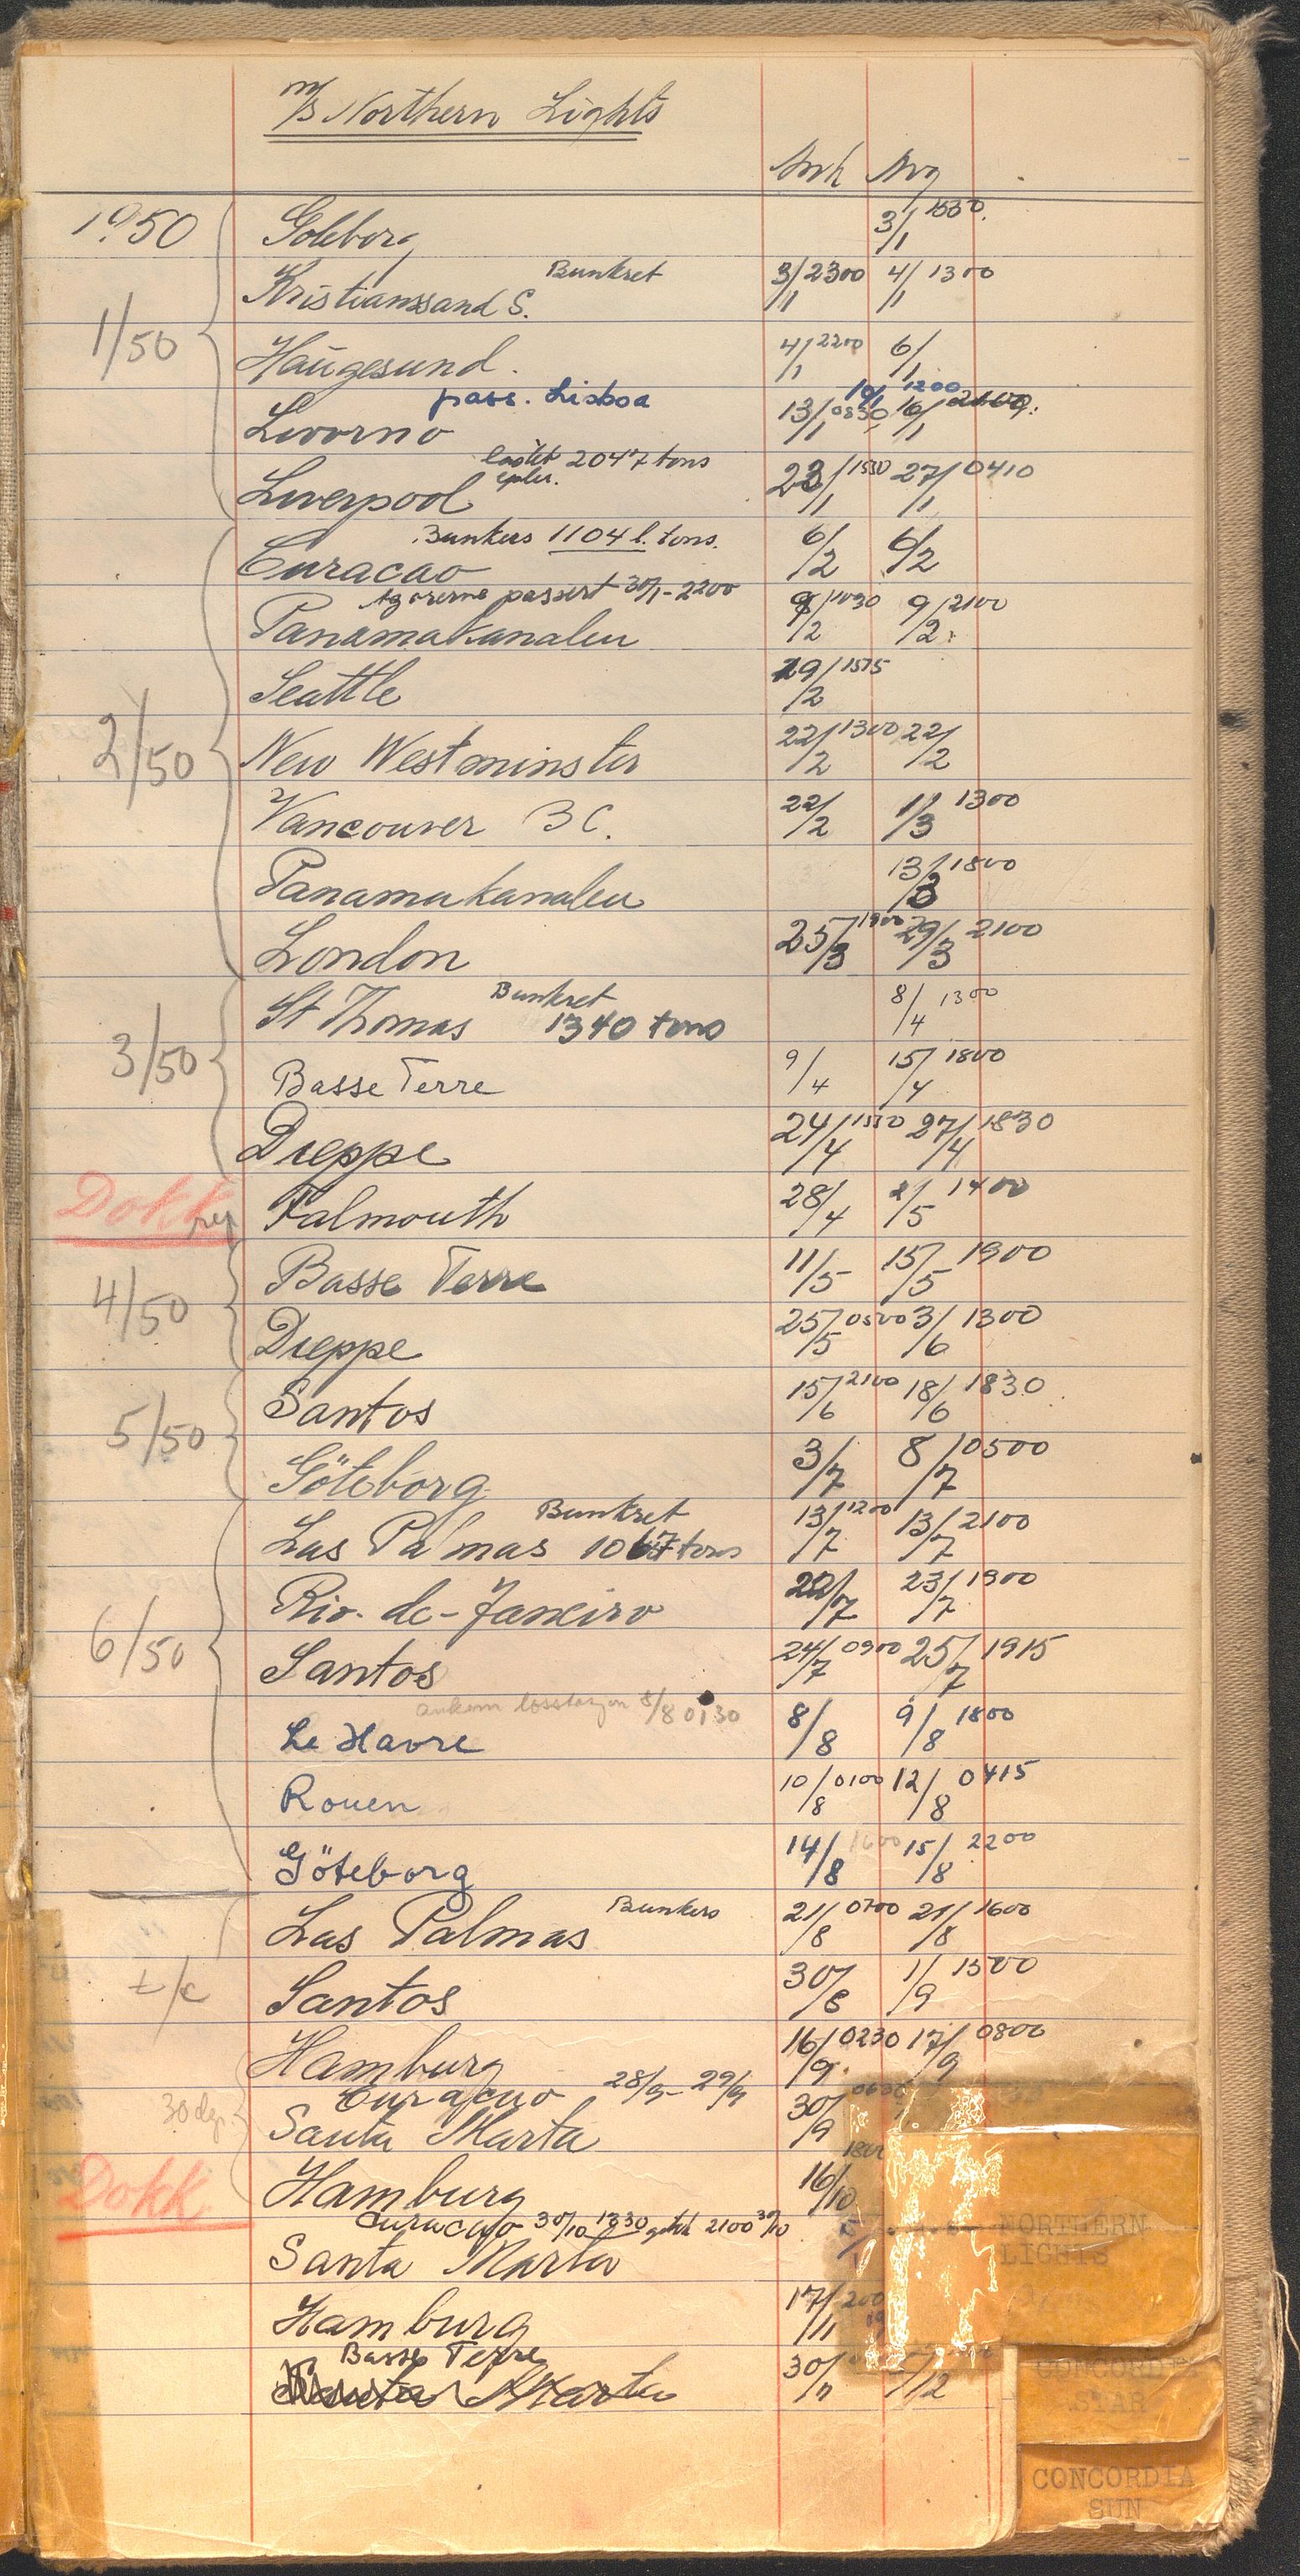 M/S Northern Lights
Ank Avg
1950 Göteborg 3/1 1530
Bunkret
Kristianssand S. 3/1 2300 4/1 1300
1/50
Haugesund. 4/1 2200 6/1
pass. Lisboa 10/1 1200
Livorno 13/1 0830 16/1
lastet 2047 tons
epler.
Liverpool 23/1 1530 27/1 0410
Bunkers 1104 l. tons.
Curacao 6/2 6/2
Azorerne passert 30/1 - 2200
Panamakanalen 9/2 1030 9/2 2100
Seattle 19/2 1515
2/50
New Westminster 22/2 1300 22/2
Vancouver BC. 22/2 1/3 1300
Panamakanalen 13/3 1800
London 25/3 1900 29/3 2100
Bunkret
St Thomas 1340 tons 8/4 1300
3/50
Basse Terre 9/4 15/4 1800
Dieppe 24/4 1530 27/4 1830
Dokk rep Falmouth 28/4 2/5 1400
Basse Terre 11/5 15/5 1900
4/50
Dieppe 25/5 0500 3/6 1300
Santos 15/6 2100 18/6 1830
5/50
Göteborg 3/7 8/7 0500
Bunkret
Las Palmas 1067 tons 13/7 1200 13/7 2100
Rio-de-Janeiro 22/7 23/7 1900
6/50
Santos 24/7 0900 25/7 1915
ankom losstasjon 8/8 0130
Le Havre 8/8 9/8 1800
Rouen 10/8 0100 12/8 0415
Göteborg 14/8 1600 15/8 2200
Bunkers
Las Palmas 21/8 0700 21/8 1600
t/c
Santos 30/8 1/9 1500
Hamburg 16/9 0230 17/9 0800
Curacao 28/9 - 29/9
30 dgr
Santa Marta 30/9 0630
1800
Dokk Hamburg 16/10
Curacao 30/10 1330 2100 30/10
Santa Marta
NORTHERN
LIGHTS
Hamburg 17/11 200
Basse Terre
Santa Marta 30/11 /12
CONCORDIA
STAR
CONCORDIA
SUN